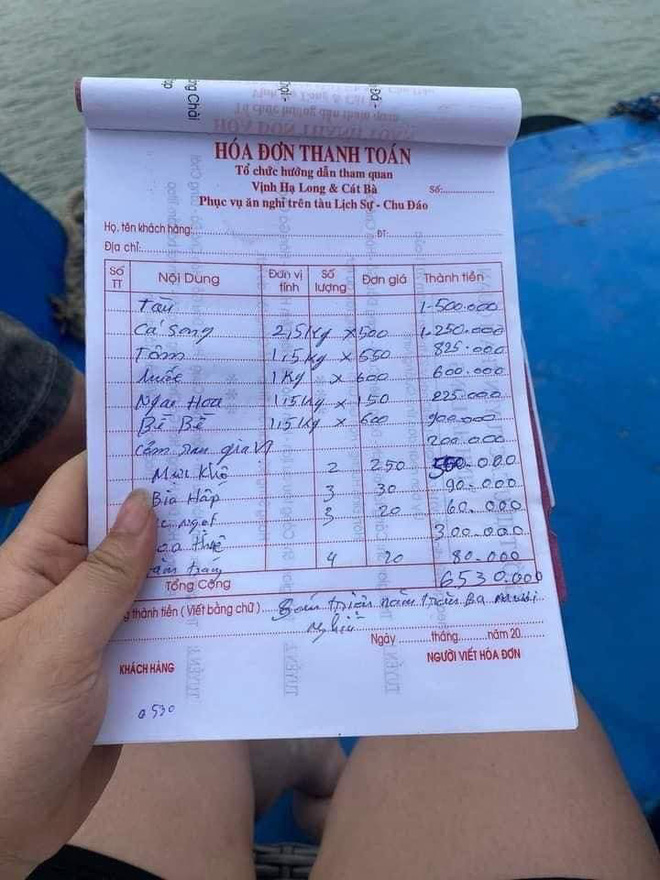 HÓA ĐƠN THANH TOÁN
Tổ chức hướng dẫn tham quan
Vịnh Hạ Long & Cát Bà
Số:
Phục vụ ăn nghỉ trên tàu Lịch Sự - Chu Đáo
Họ, tên khách hàng: ĐT:
Địa chỉ:
Số TT Nội Dung Đơn vị tính Số lượng Đơn giá Thành tiền
Tàu 1.500.000
Cá Song 2,5 Kg x 500 1.250.000
Tôm 1,5 Kg x 550 825.000
1 Kg x 600 600.000
Ngao Hoa 1,5 Kg x 150 225.000
Bề Bề 1,5 Kg x 600 900.000
Cơm rau gia vị 200.000
Mực Khô 2 250 000
Bia Hấp 3 30 90.000
ngọt 3 20 60.000
300.000
tráng 4 20 80.000
Tổng Cộng 6530.000
thành tiền ( Viết bằng chữ ) Sáu triệu năm trăm Ba mươi
nghìn
Ngày tháng năm 20
KHÁCH HÀNG NGƯỜI VIẾT HÓA ĐƠN
6530